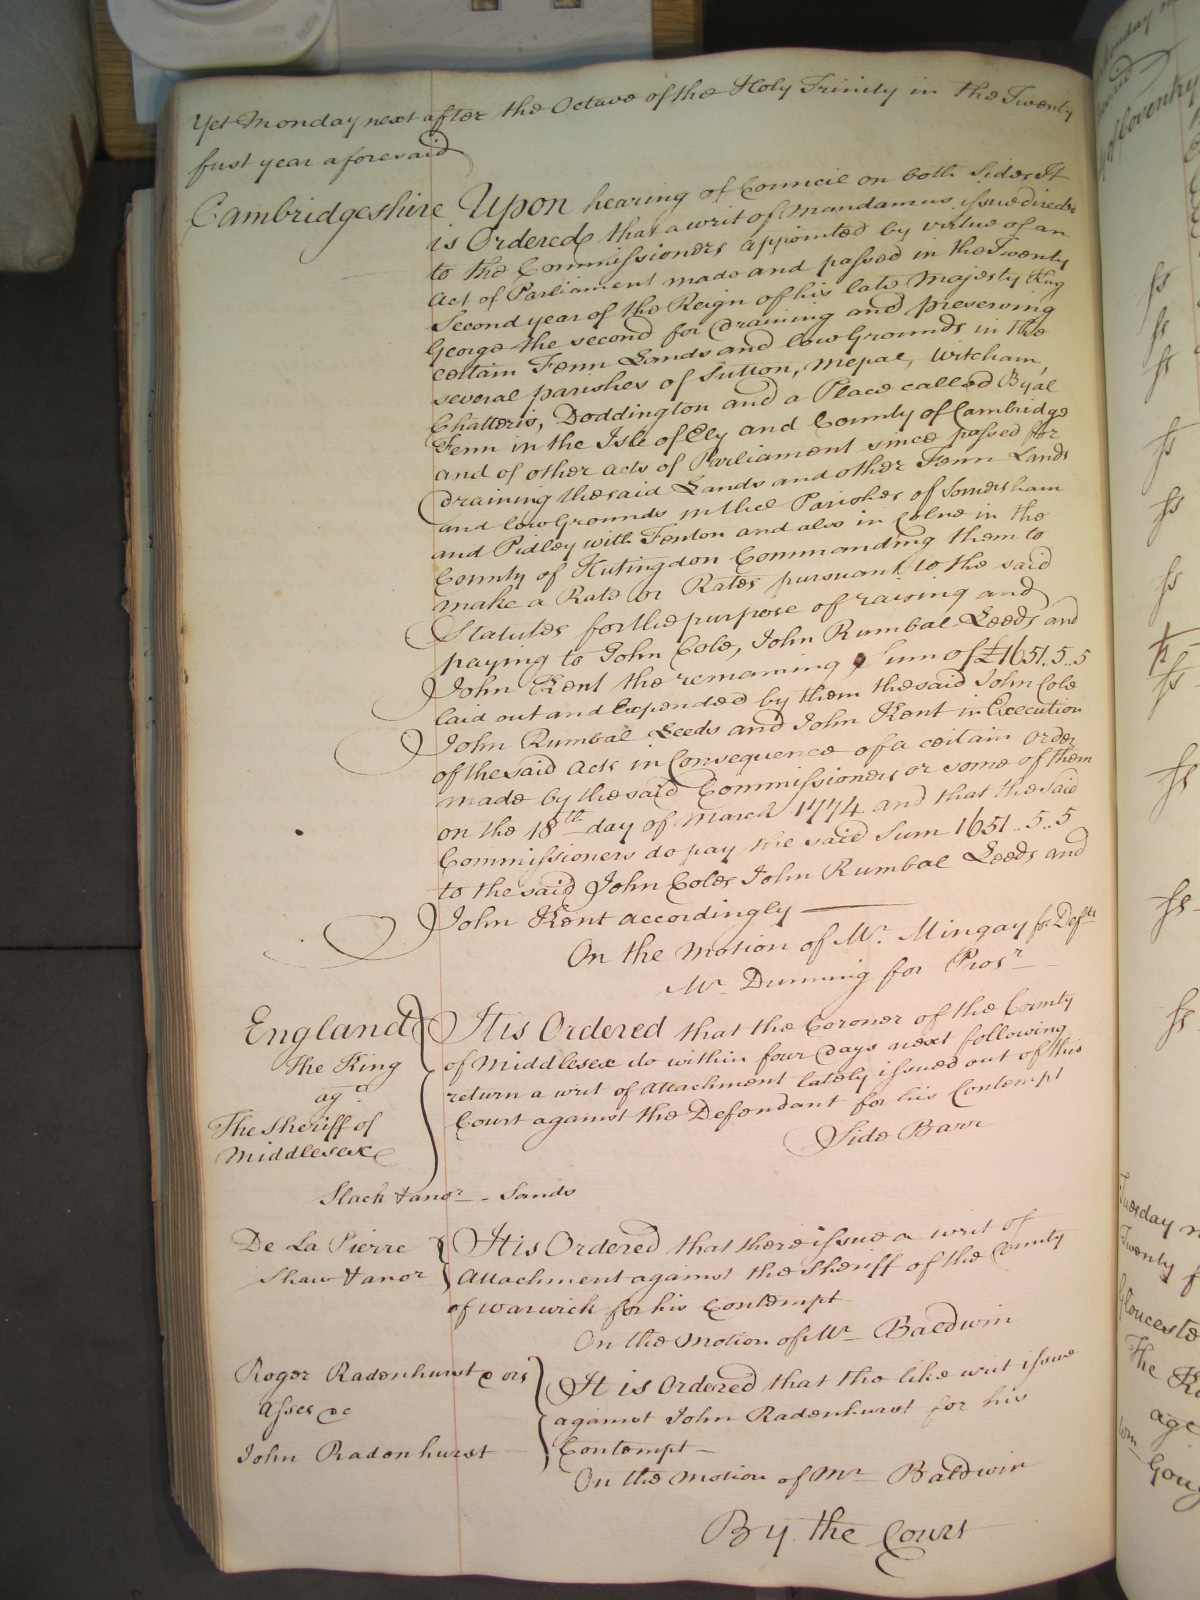 Yet Monday next after the Octave of the Holy Trinity in the Twenty
first year aforesaid
Cambridgeshire Upon hearing of Council on both Sides It
is Ordered that a writ of Mandamus issue directed
to the Commissioners appointed by virtue of an
Act of Parliament made and passed in the Twenty
Second year of the Reign of his late Majesty King
George the second for Draining and preserving
certain Fenn Lands and low Grounds in the
several parishes of Sutton, Mepal, Witcham,
Chatteris, Doddington and a Place called Byal
Fenn in the Isle of Ely and County of Cambridge
and of other acts of Parliament since passed for
Draining the said Lands and other Fenn Lands
and low Grounds in the Parishes of Somersham
and Pidley with Fenton and also in Colne in the
County of Hutingdon Commanding them to
make a Rate or Rates pursuant to the said
Statutes for the purpose of raising and
paying to John Cole, John Rumbal Leeds and
John Kent the remaining Sum of £1651..5..5
laid out and Expended by them the said John Cole
John Rumbal Leeds and John Kent in Execution
of the said Acts in Consequence of a certain order
made by the said Commissioners or some of them
on the 18th day of March 1774 and that the said
Commissioners do pay the said Sum 1651..5..5
to the said John Coles John Rumbal Leeds and
John Kent accordingly
On the Motion of Mr. Mingay for Defts
Mr Dunning for Prosr
England It is Ordered that the Coroner of the County
The King of Middlesex do within four Days next following
agt return a writ of Attachment lately issued out of this
The Sheriff of Court against the Defendant for his Contempt
Middlesex Side Barr
Slack & anor - Sands
De La Pierre It is Ordered that there issue a writ of
Shaw & anor Attachment against the Sheriff of the County
of Warwick for his Contempt
On the Motion of Mr Baldwin
Roger Radenhurst & ors It is Ordered that the like writ issue
Asses &c against John Radenhurst for his
John Radenhurst Contempt
On the Motion of Mr Baldwin
By the Court
Monday
of Coventry
Tuesday
Twenty f
Glouceste
The
agt
Wm